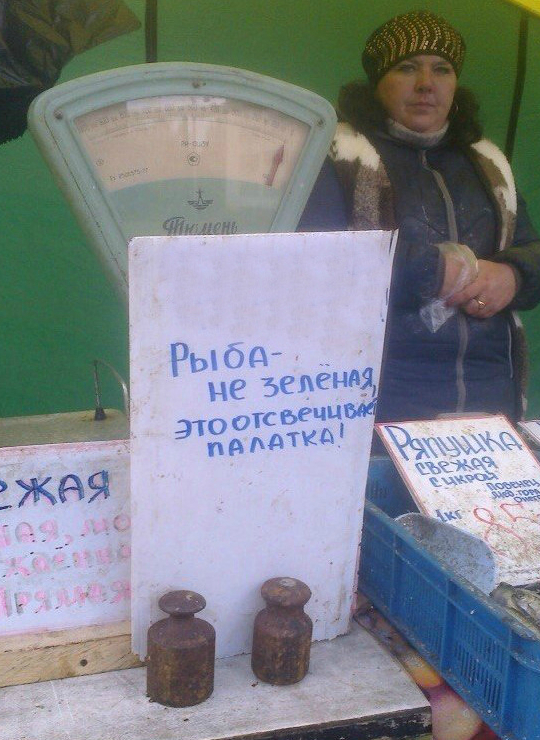 Тюмень
Рыба-
не зелёная,
это отсвечивает
палатка!
ежая
прямая
Ряпушка
свежая
с икрой
1кг